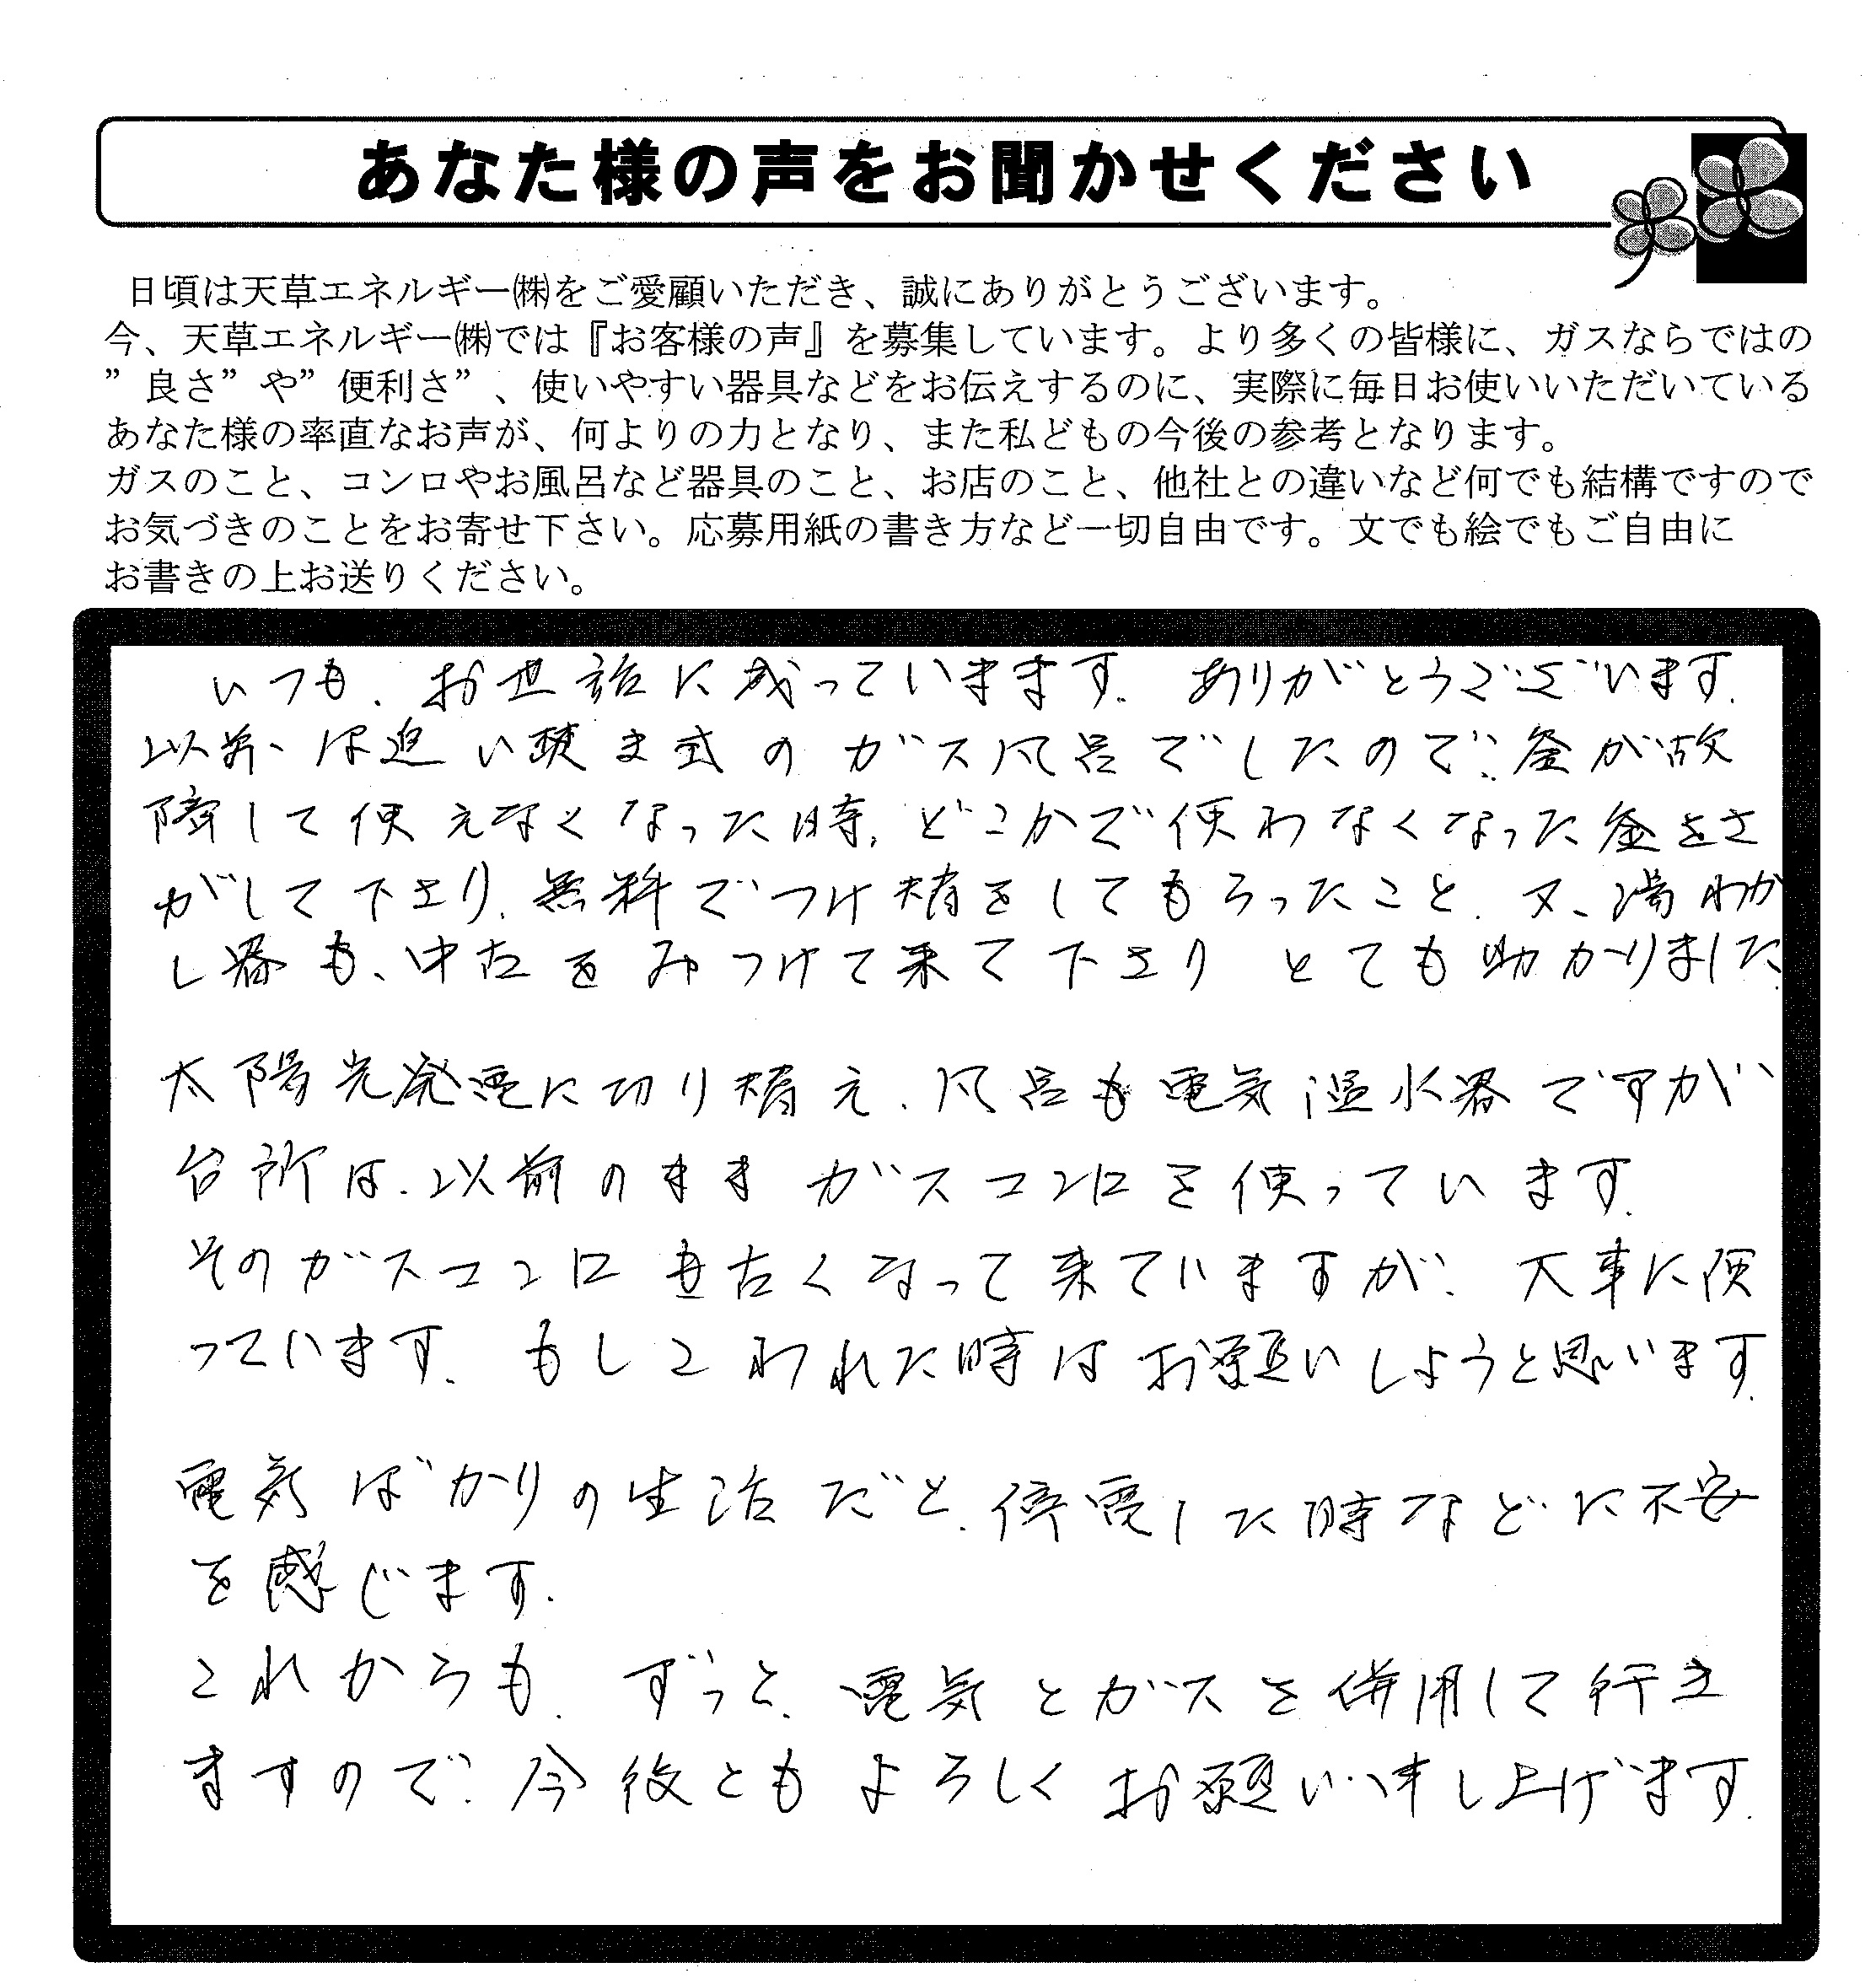 あなた様の声をお聞かせください
日頃は天草エネルギー㈱をご愛顧いただき、誠にありがとうございます。
今、天草エネルギー㈱では『お客様の声』を募集しています。より多くの皆様に、ガスならではの
”良さ”や”便利さ”、使いやすい器具などをお伝えするのに、実際に毎日お使いいただいている
あなた様の率直なお声が、何よりの力となり、また私どもの今後の参考となります。
ガスのこと、コンロやお風呂など器具のこと、お店のこと、他社との違いなど何でも結構ですので
お気づきのことをお寄せ下さい。応募用紙の書き方など一切自由です。文でも絵でもご自由に
お書きの上お送りください。
いつも、お世話に成っていまます。ありがとうございます。
以前、は追い焚き式のガス風呂でしたので、釜が故
障して使えなくなった時、どこかで使わなくなった釜をさ
がして下さり、無料でつけ替をしてもらったこと、又、湯わか
し器も、中古をみつけて来て下さり とても助かりました。
太陽光発電に切り替え、風呂も電気温水器ですが
台所は、以前のまま ガスコンロを使っています。
そのガスコンロも古くなって来ていますが、大事に使
っています。もしこわれた時はお願いしようと思います。
電気ばかりの生活だと、停電した時などに不安
を感じます。
これからも、ずっと、電気とガスを併用して行き
ますので、今後ともよろしくお願い申し上げます。